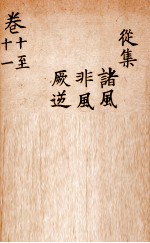 從集
諸風
非風
厥逆
卷十至
十一